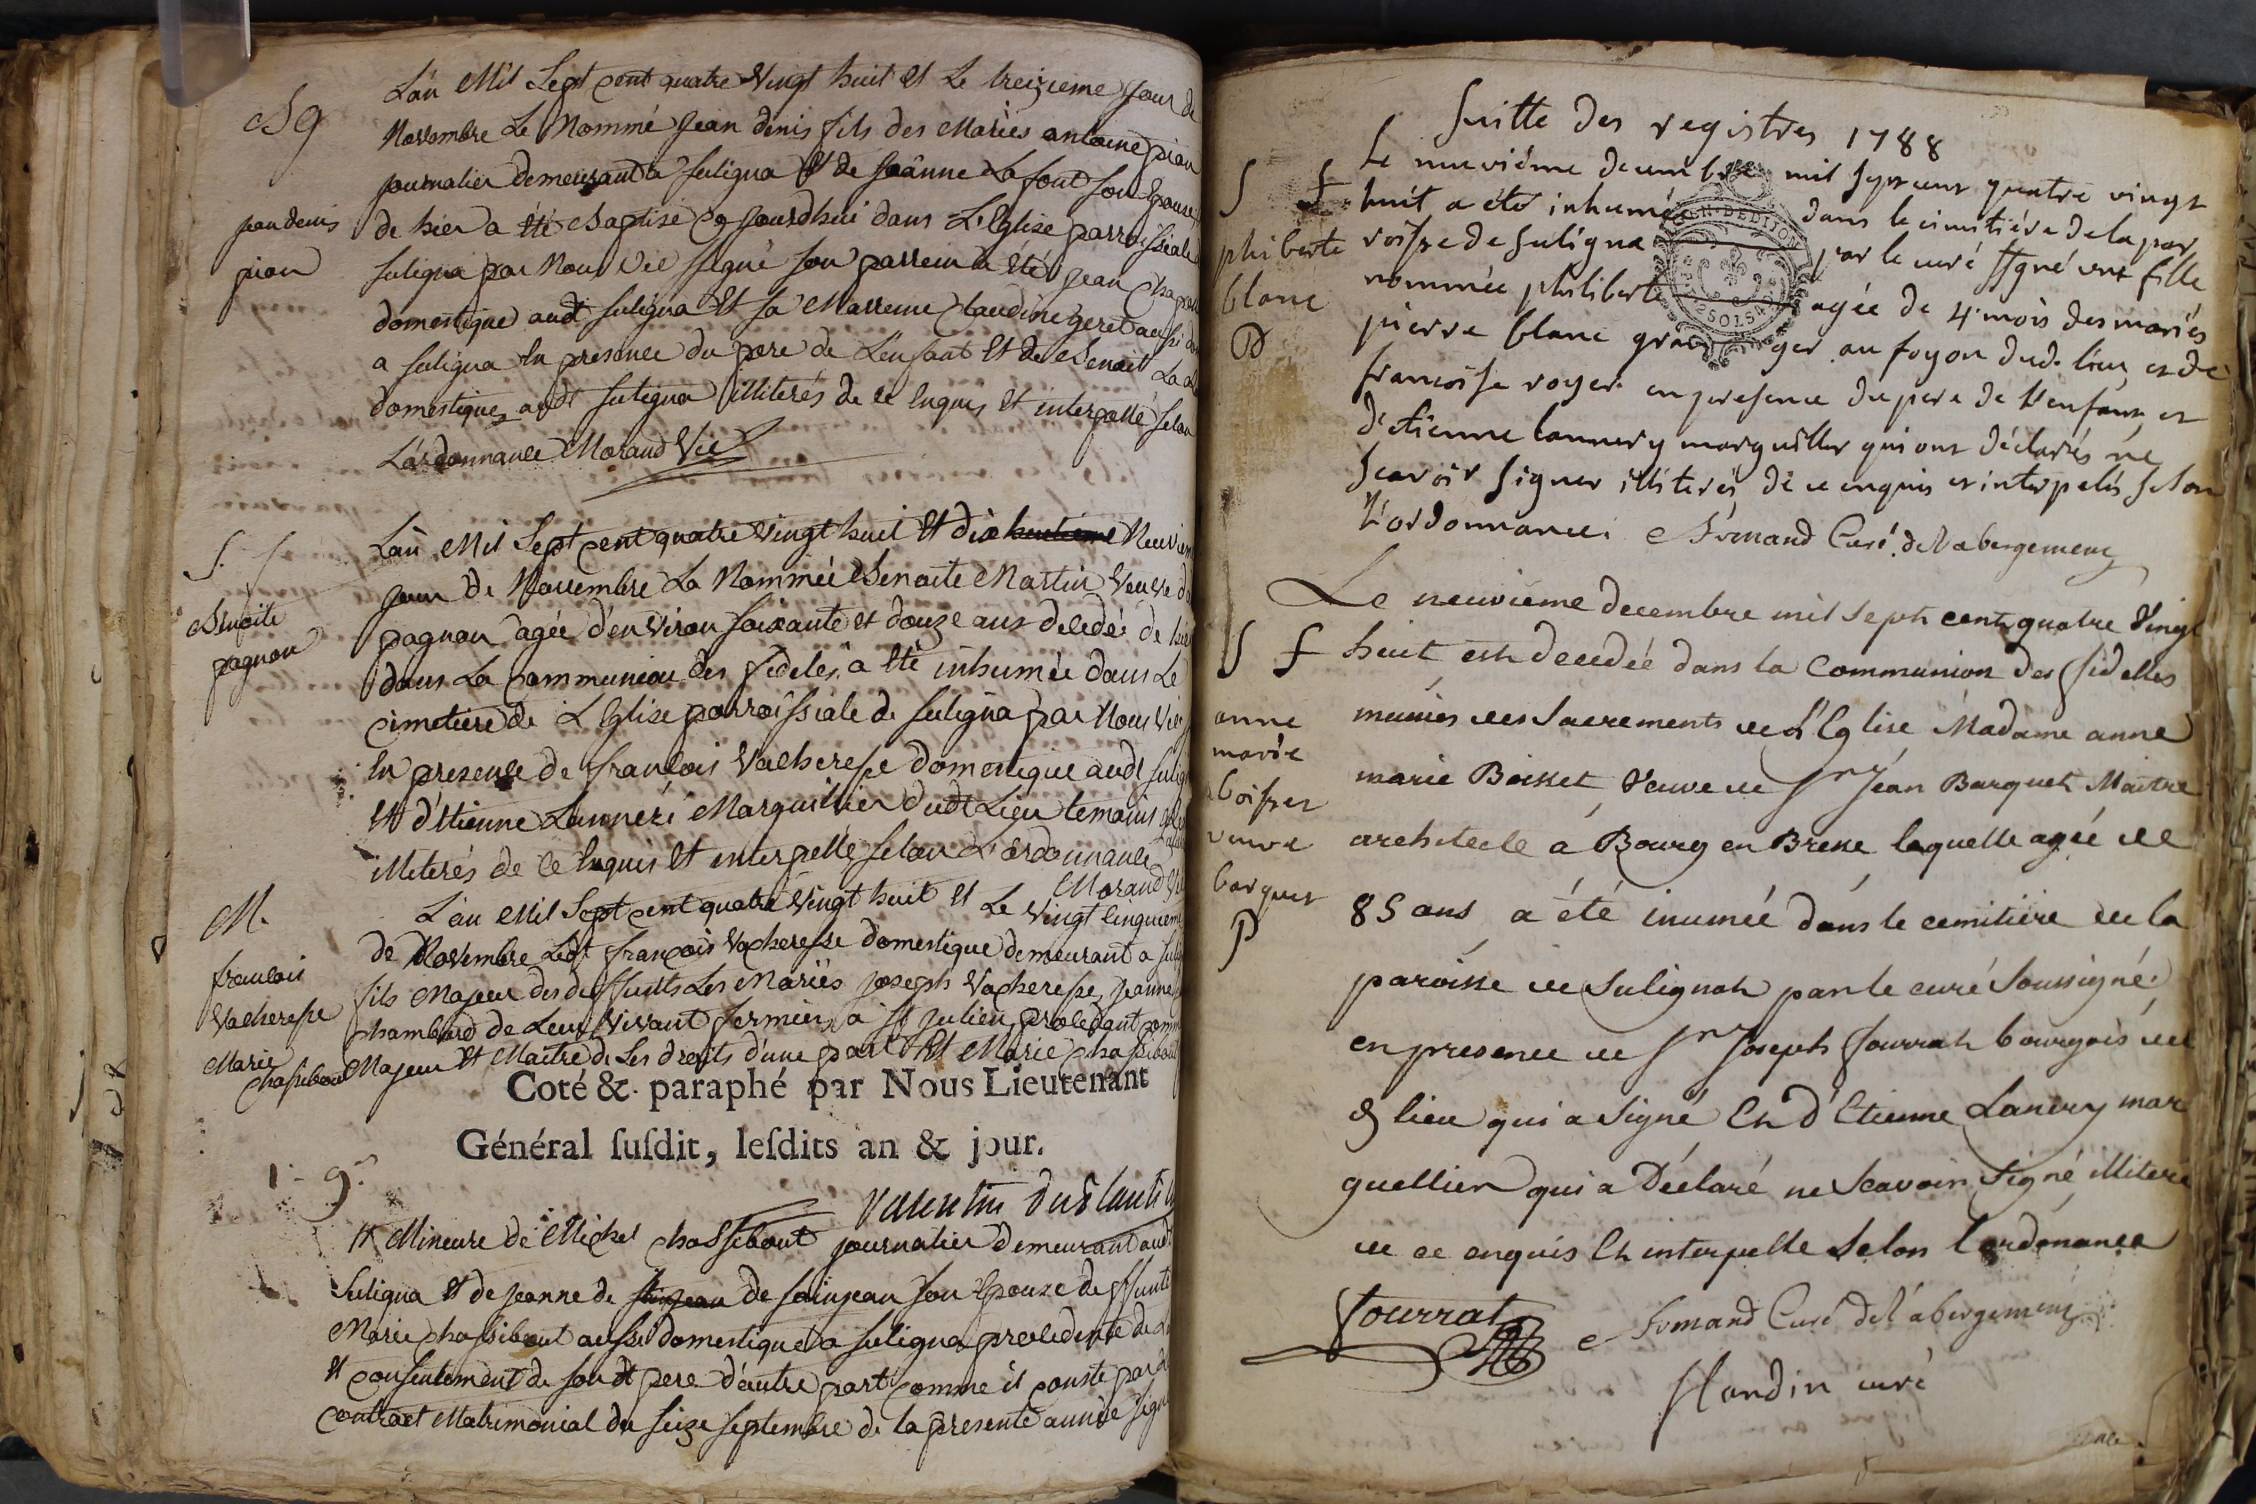 B 9
jean denis
pion
L'an Mil Sept cent quatre Vingt huit et Le treizieme jour de
Novembre Le Nommé Jean denis fils des Mariés antoine pion
journalier demeurant a Suligna et de Jeanne Lafont son Epouse
de hier a été Baptisé ce jourdhui dans L'Eglise parroissiale
Suligna par Nous Vic signé son parrein a été jean
domestique audt Suligna et sa Marreine Claudine geret aussi
a Suligna En presence du pere de L'enfant et de Benoit La
domestiques audt Suligna illiterés de ce Enquis et interpellé selon
L'ordonnance Morand Vic
S.
Benoite
pagnon
L'an Mil Sept cent quatre Vingt huit et dix huitieme Neuvieme
jour de Novembre La Nommée Benoite Martin Veuve
pagnon agée d'environ soixante et douze ans decedée de hier
dans La Communion des fideles a été inhumée dans Le
Cimetiere de L'Eglise parroissiale de Suligna par Nous Vic
En presence de francois Vacheresse domestique audt
et d'Etienne Lanneri Marguillier dudt Lieu temoins
illiterés de ce Enquis et interpellé selon L'ordonnance
Morand Vic
M.
francois
Vacheresse
Marie
chassibout
L'an Mil Sept cent quatre Vingt huit et Le Vingt cinquieme
de Novembre Ledt françois Vacheresse domestique demeurant a
fils Majeur des deffunts Les Mariés joseph Vacheresse, jeanne
chambard de Leur Vivant fermiers a st julien, procedant comme
Majeur et Maitre de Ses droits d'une part Et Marie chassibout
Coté & paraphé par Nous Lieutenant
Général susdit, lesdits an & jour.
1 - 9
Valentin duplantis
et Mineure de Michel chassibout journalier demeurant audt
Suligna et de jeanne de de sainjean son Epouse deffunte
Marie chassibout aussi domestique a Suligna procedente de
et consentement de sondt pere d'autre part comme il conste par
contract Matrimonial du seize septembre de la presente année signé
Suitte des registres 1788
S f
philiberte
blanc
Le neuviéme decembre mil sept cent quatre vingt
huit a été inhumé dans le cimitiére de la par
roisse de Suligna par le curé ssgné une fille
nommée philiberte agée de 4 mois des mariés
pierre blanc granger au foyon dud. lieu et de
francoise royer en presence du pere de l'enfant et
d'etienne lannery marguillier qui ont déclarés ne
scavoir signer illiterés de ce enquis et interpelés selon
l'ordonnance. Armand Curé de l'abergement
S f
anne
marie
boisset
veuve
barquet
P
Le neuvieme decembre mil sept cent quatre Vingt
huit est decedée dans la Communion des fidelles
munies des Sacrements de L'Eglise Madame anne
marie Boisset, Veuve de Sr Jean Barquet Maitre
architecte á Bourg en Bresse laquelle agée de
85 ans a été inumée dans le cemitiere de la
paroisse de Sulignat par le curé Soussigné
en presence de Sr Joseph Jourrat bourgois de
lieu qui a Signé Et d'Etienne Lanery mar
guellier qui a Déclaré ne Scavoir Signé illiteré
de ce enquis Et interpelle Selon l'ordonance
Jourrat
Armand Curé de l'abergement
Nandin curé